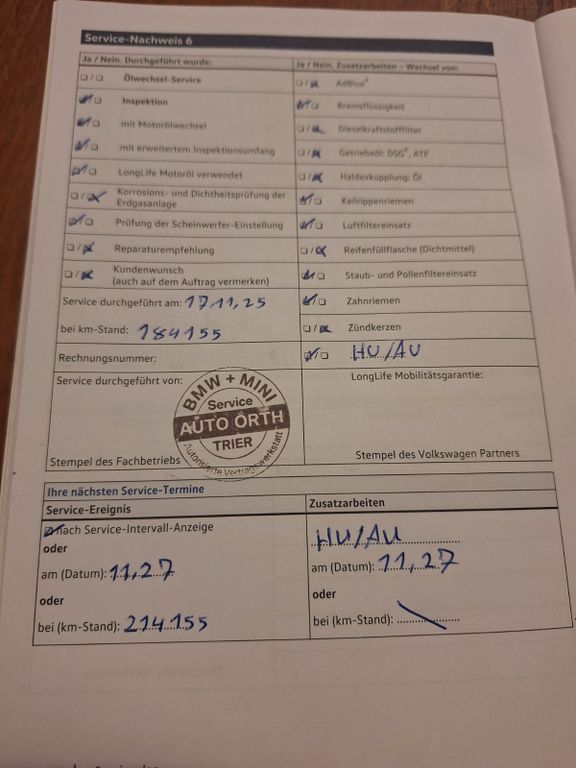 Service-Nachweis 6
Ja / Nein. Durchgeführt wurde:
Ölwechsel-Service
Inspektion
mit Motorölwechsel
mit erweitertem Inspektionsumfang
LongLife Motoröl verwendet
Korrosions- und Dichtheitsprüfung der
Erdgasanlage
Prüfung der Scheinwerfer-Einstellung
Reparaturempfehlung
Kundenwunsch
(auch auf dem Auftrag vermerken)
Service durchgeführt am: 17.11.25
bei km-Stand: 184155
Rechnungsnummer:
Ja / Nein. Zusatzarbeiten – Wechsel von:
AdBlue®
Bremsflüssigkeit
Dieselkraftstofffilter
Getriebeöl: DSG®, ATF
Haldexkupplung: Öl
Keilrippenriemen
Luftfiltereinsatz
Reifenfüllflasche (Dichtmittel)
Staub- und Pollenfiltereinsatz
Zahnriemen
Zündkerzen
HU/AU
Service durchgeführt von:
BMW + MINI
Service
AUTO ORTH
TRIER
Autorisierte Vertragswerkstatt
Stempel des Fachbetriebs
LongLife Mobilitätsgarantie:
Stempel des Volkswagen Partners
Ihre nächsten Service-Termine
Service-Ereignis
nach Service-Intervall-Anzeige
oder
am (Datum): 11.27
oder
bei (km-Stand): 214155
Zusatzarbeiten
HU/AU
am (Datum): 11.27
oder
bei (km-Stand):